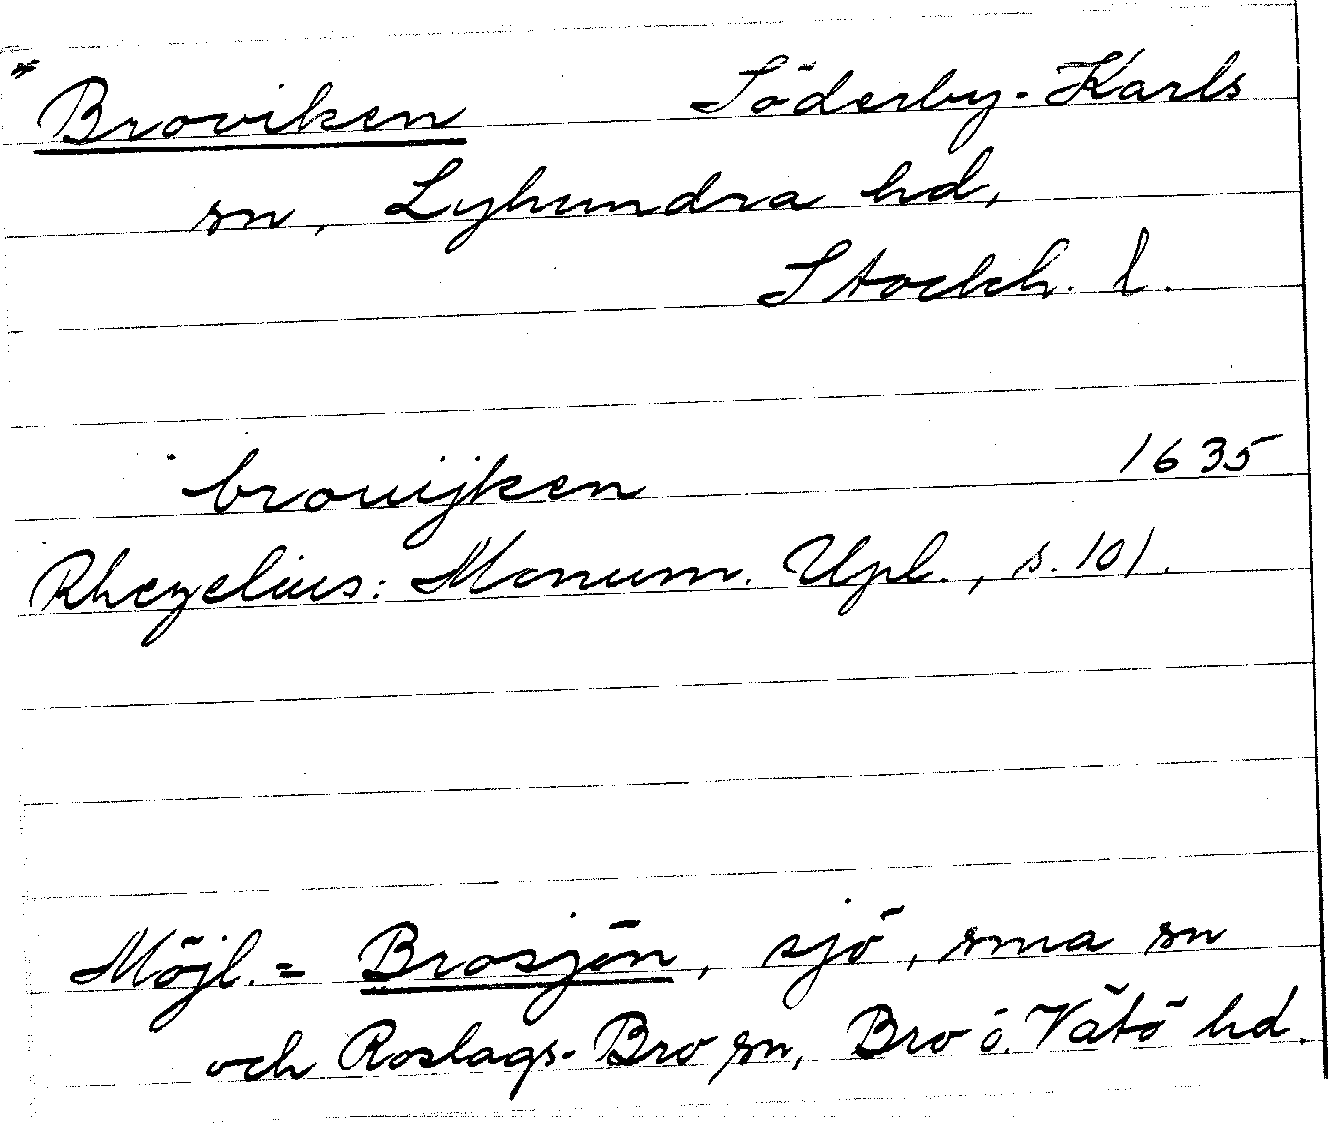 * Broviken Söderby-Karls
sn, Lyhundra hd,
Stockh. l.
brouijken 1635
Rhezelius: Monum. Upl., s. 101.
Möjl. = Brosjön, sjö, sma sn
och Roslags-Bro sn, Bro o. Vätö hd.